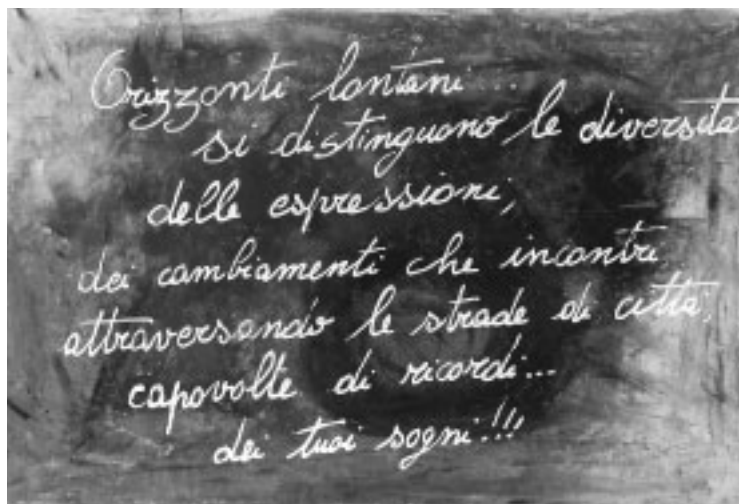 Orizzonti lontani...
si distinguono le diversità
delle espressioni,
dei cambiamenti che incontri
attraversando le strade di città,
capovolte di ricordi...
dei tuoi sogni!!!